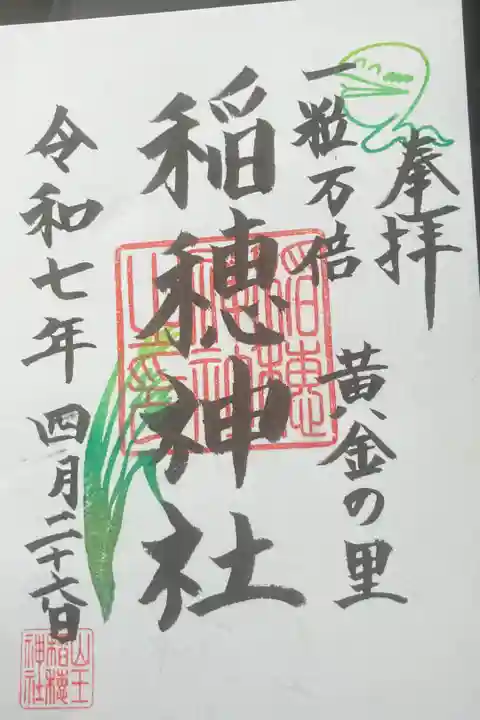 奉拝
一粒万倍 黄金の里
稲穂神社
令和七年 四月二十六日
稲穂神社之印
山王稲穂神社